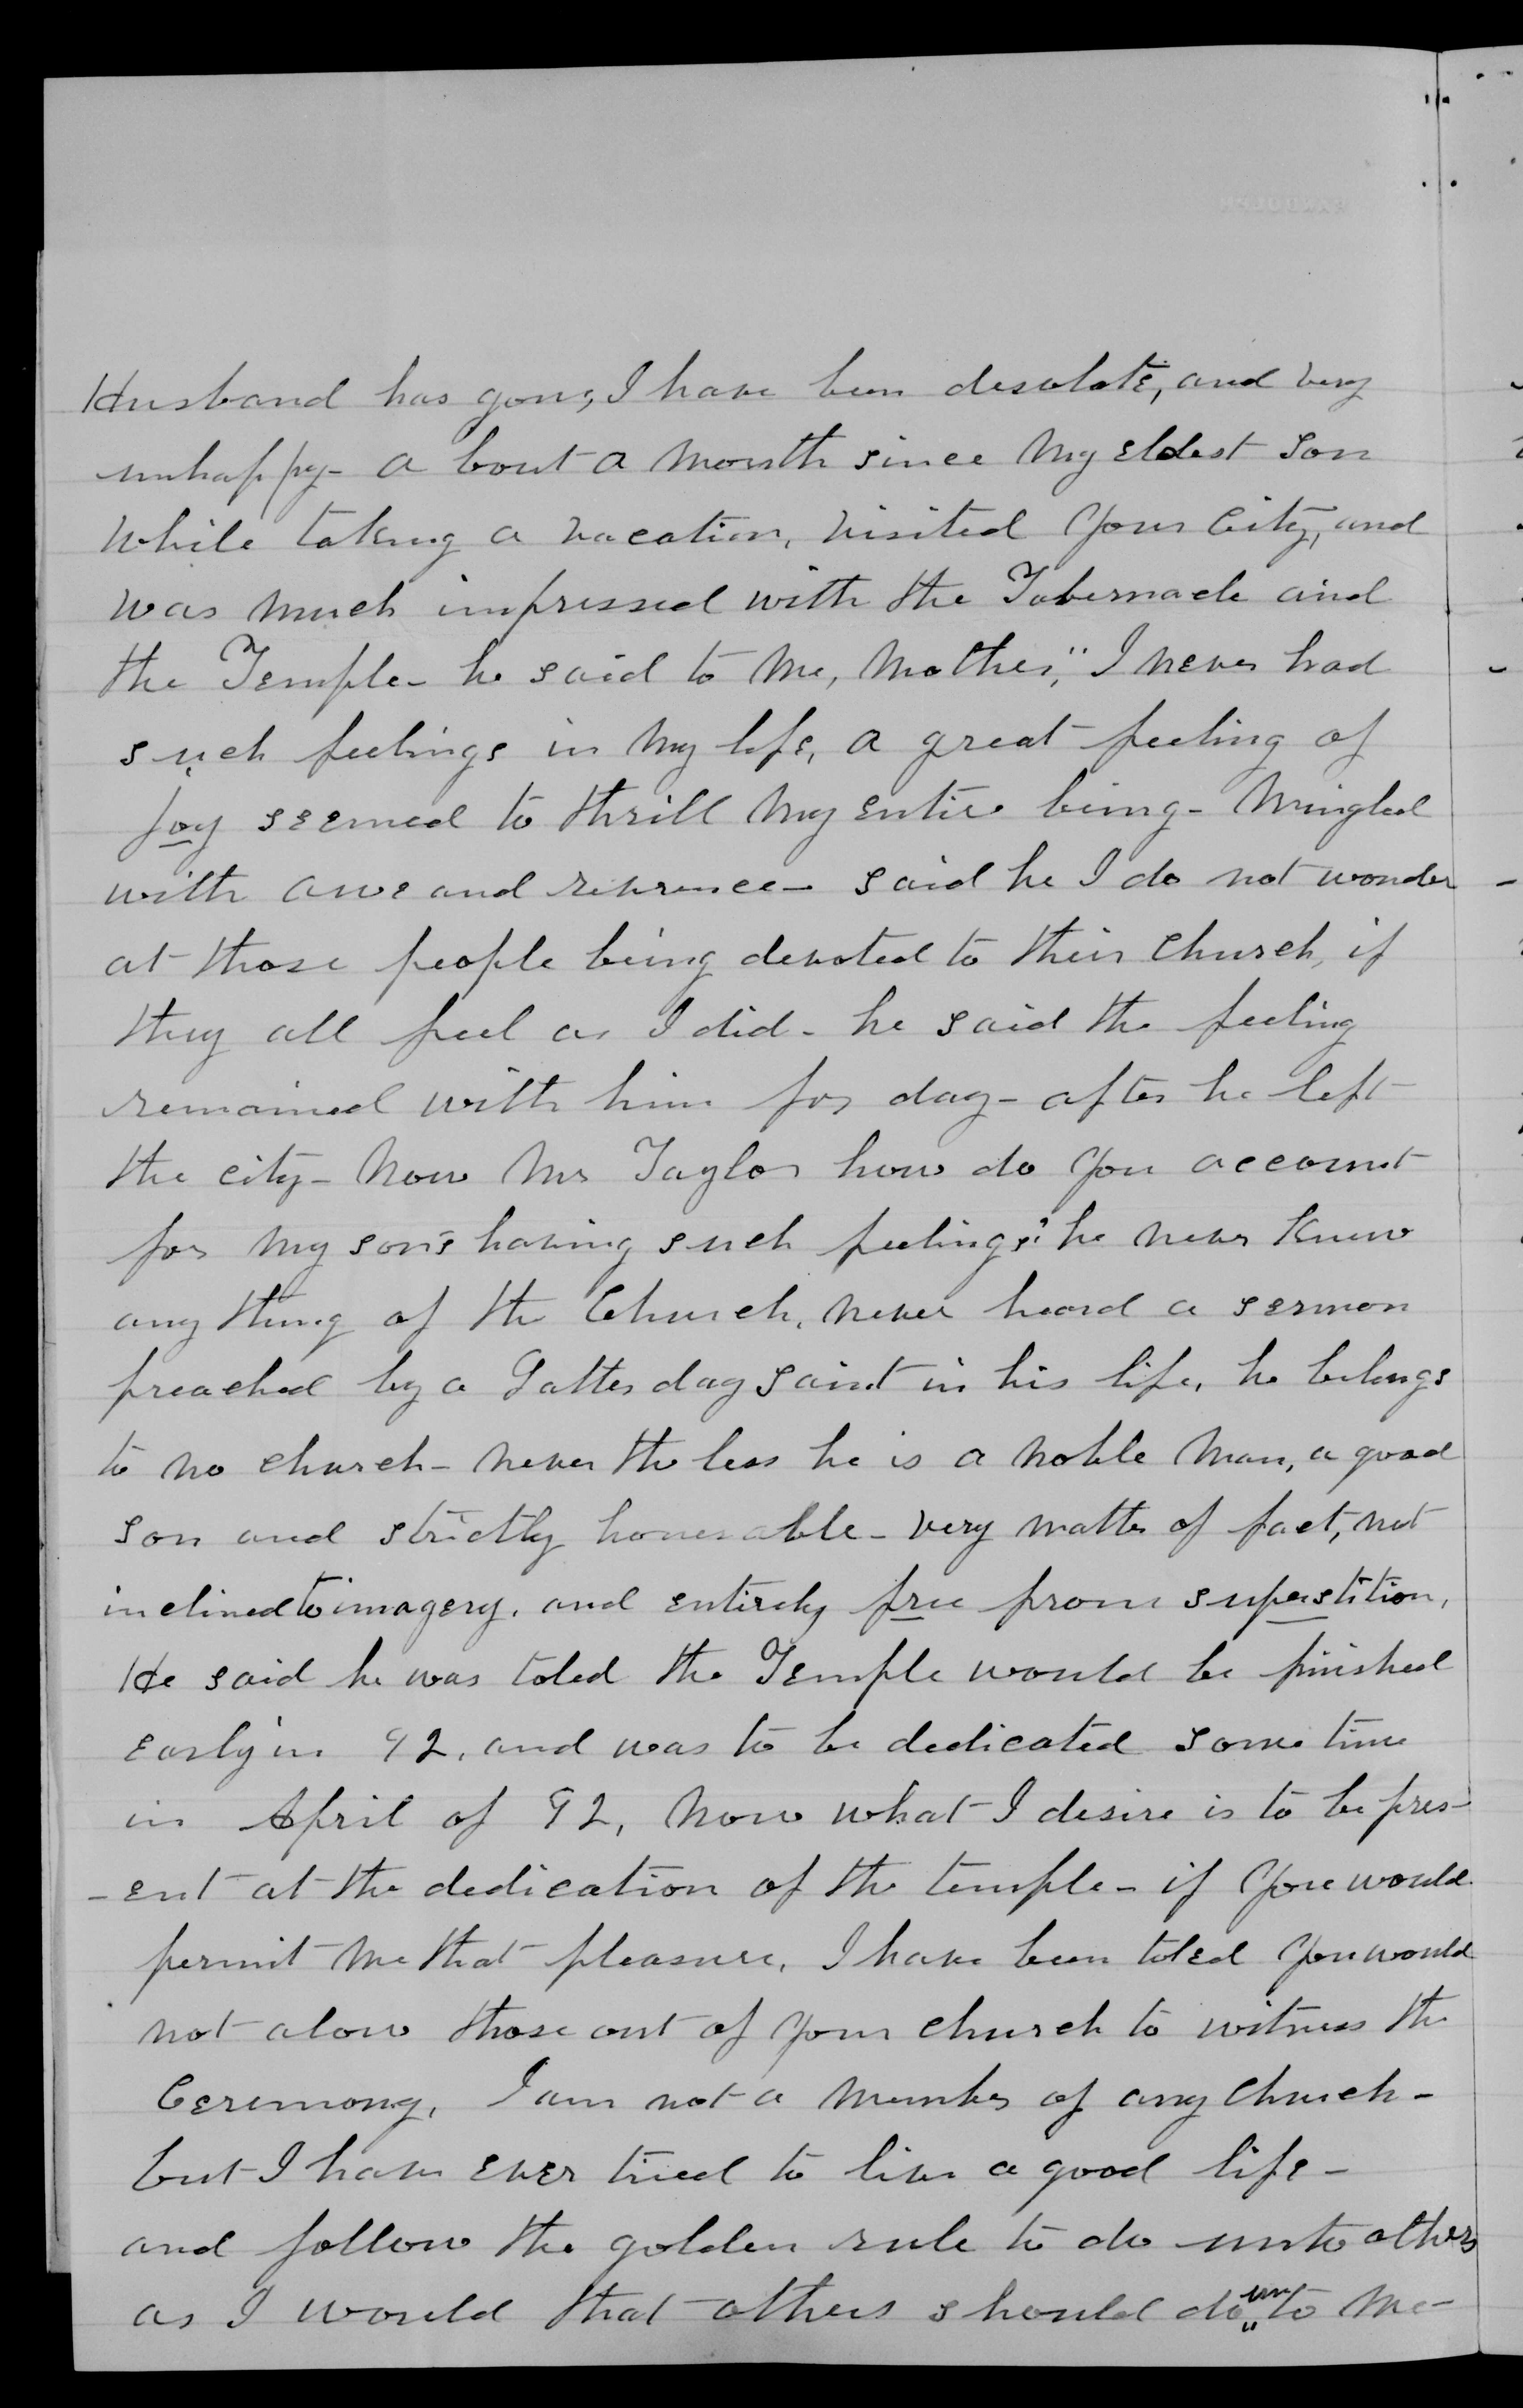 Husband has gone, I have been desolate, and very
unhappy - a bout a month since my Eldest Son
while taking a vacation, visited your City, and
was much impressed with the Tabernacle and
the Temple - he said to me, Mother," I never had
such feelings in my life, a great feeling of
joy seemed to thrill my entire being - mingled
with awe and reverence - said he I do not wonder
at those people being devoted to their Church, if
they all feel as I did - he said the feeling
remained with him for day - after he left
the city - Now Mr Taylor how do you account
for my son's having such feelings? he never knew
any thing of the Church, never heard a sermon
preached by a Latter day Saint in his life, he belongs
to no church - never the less he is a noble man, a good
son and strictly honerable - very matter of fact, not
inclined to imagery, and entirely free from superstition,
He said he was toled the Temple would be finished
Early in 92, and was to be dedicated some time
in April of 92, Now what I desire is to be pres-
-ent at the dedication of the temple - if you would
permit me that pleasure, I have been toled you would
not alow those out of your church to witness the
Ceremony, I am not a member of any Church -
but I have ever tried to live a good life -
and follow the golden rule to do unto others
as I would that others should do unto me -